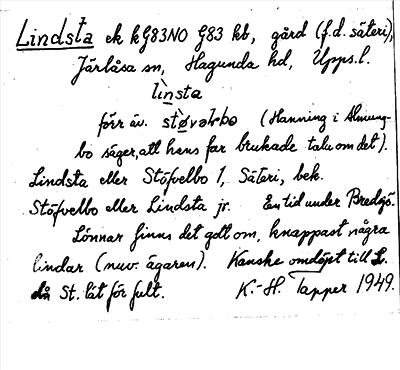 Lindsta ek kG83NO G83 kb, gård (f.d. säteri),
Järlåsa sn, Hagunda hd, Upps.l.
lìnsta
förr äv. støvəlbo (Hanning i Almung-
bo säger, att hens far brukade tala om det).
Lindsta eller Stöfvelbo 1, Säteri, bek.
Stöfvelbo eller Lindsta jr. En tid under Bredsjö.
Lönnar finns det gott om, knappast några
lindar (nuv. ägaren). Kanske omdöpt till L.
då St. lät för fult. K.-H. Tapper 1949.